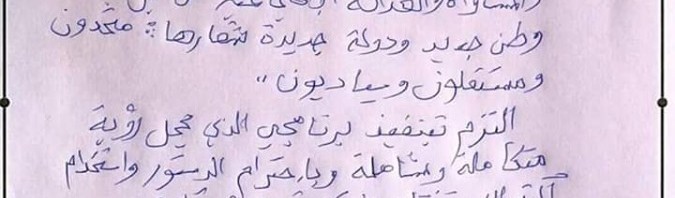 وطن جديد ودولة جديدة شعارها: متحدون
ومستقلون وسياديون"
التزم بتنفيذ برنامجي الذي يحمل رؤية
متكاملة وشاملة وباحترام الدستور واستخدام